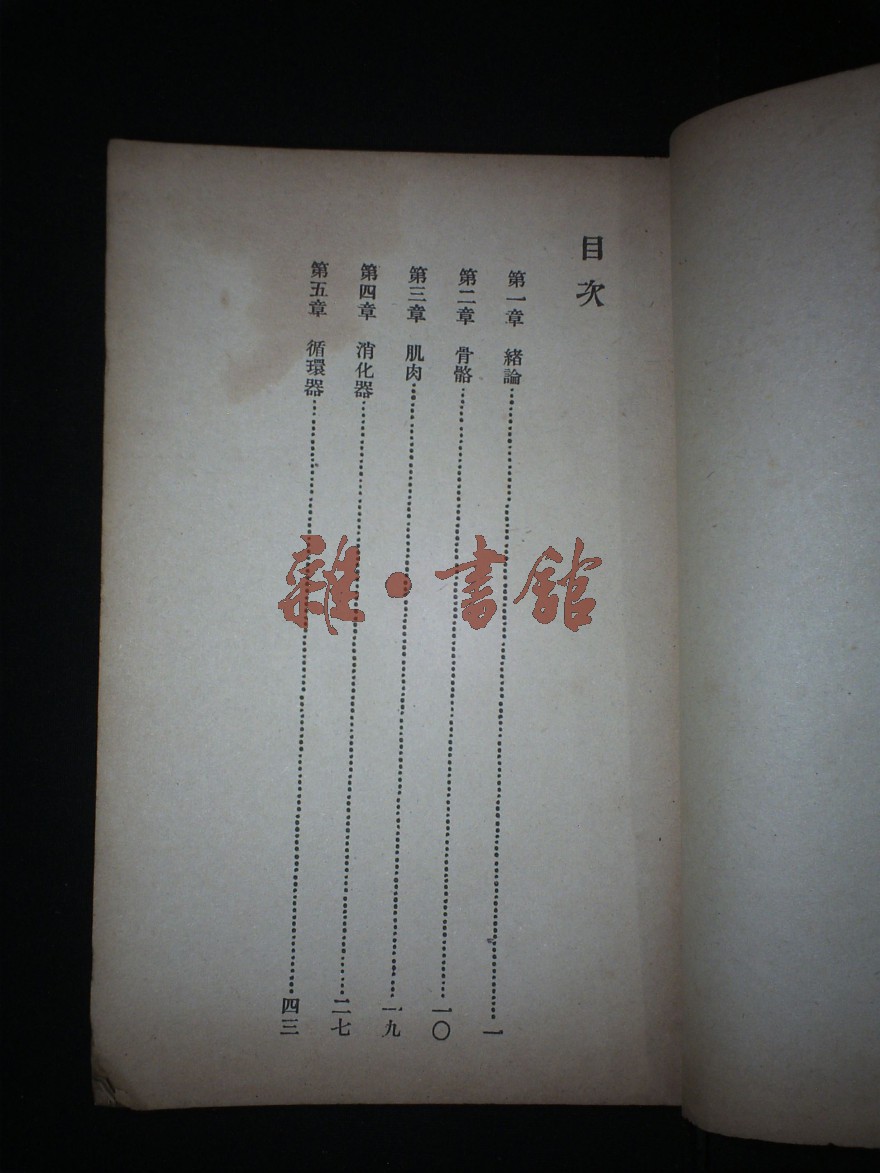 目次
第一章 緒論…………一
第二章 骨骼…………一〇
第三章 肌肉…………一九
第四章 消化器…………二七
第五章 循環器…………四三
雜·書館